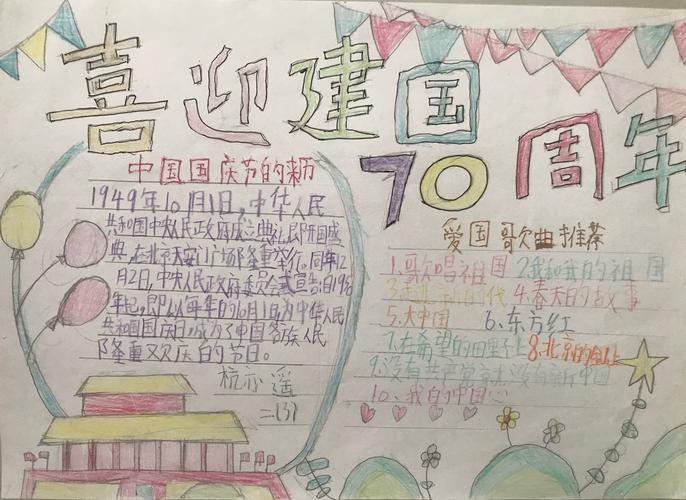 喜迎建国70周年
中国国庆节的来历
1949年10月1日,中华人民
共和国中央人民政府成立典礼,即开国盛
典,在北京天安门广场隆重举行。同年12
月2日,中央人民政府委员会宣告:自19
年起,即以每年的10月1日为中华人民
共和国国庆日,成为了中国各族人民
隆重欢庆的节日。
杭亦遥
二(3)
爱国歌曲推荐
1.歌唱祖国 2我和我的祖国
3.走进新时代 4.春天的故事
5.大中国 6.东方红
7.在希望的田野上 8.北京的金山上
9.没有共产党就没有新中国
10、我的中国心